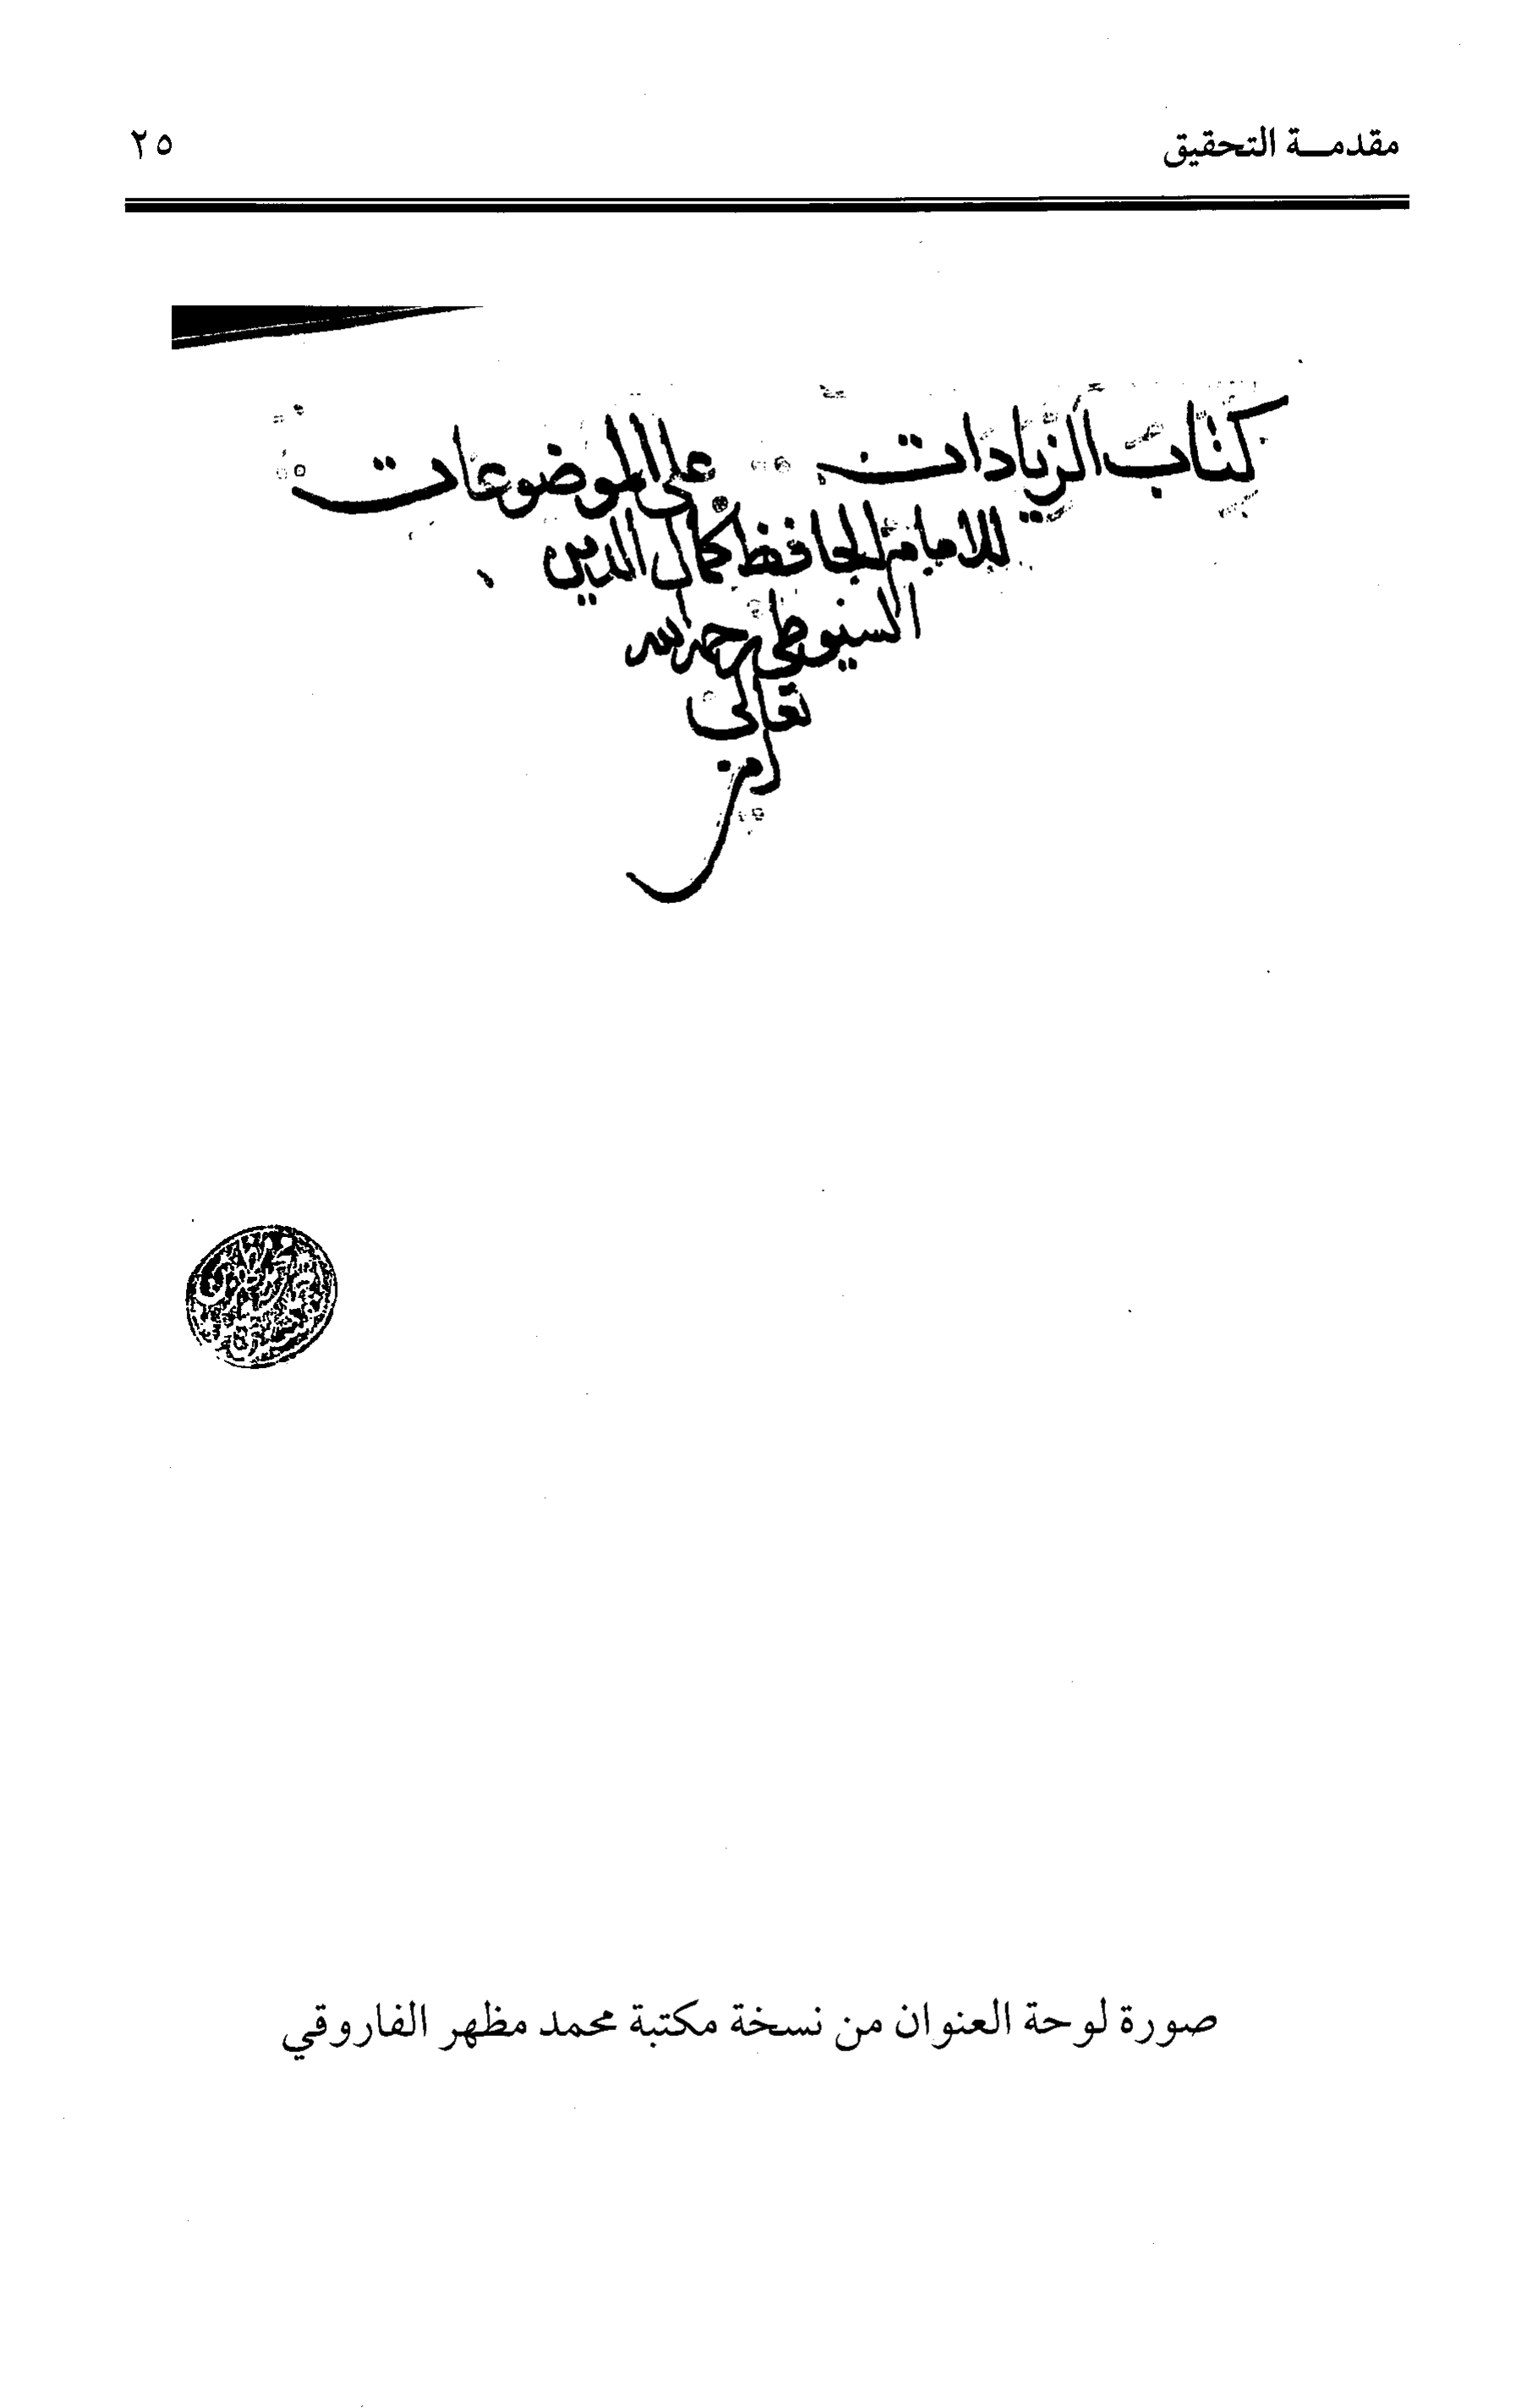 مقدمـــة التحقيق ٢٥
كتاب الزيادات على الموضوعات
للامام الحافظ كمال الدين
السيوطي رحمه الله
تعالى
صورة لوحة العنوان من نسخة مكتبة محمد مظهر الفاروقي